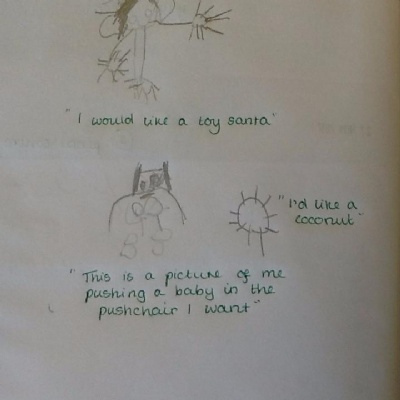 "I would like a toy santa"
"I'd like a
coconut"
"This is a picture of me
pushing a baby in the
pushchair I want"